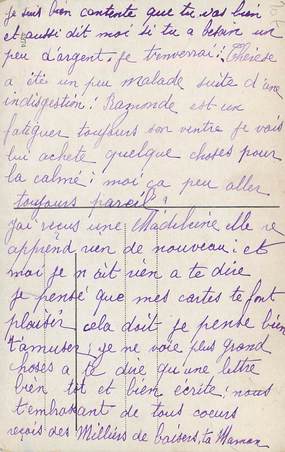 je suis bien contente que tu vas bien
et aussi dit moi si tu a besoin un
peu d'argent. je t'enverrai : Thérèse
a été un peu malade suite d'une
indigestion ; Raymonde est un
fatiguer toujours son ventre je vais
lui acheté quelque choses pour
la calmé ; moi ça peu aller
toujours pareil ;
j'ai reçus une Madeleine elle
apprend rien de nouveau ; et
moi je n ait rien a te dire
je pensé que mes cartes te font
plaisir cela doit je pense bien
t'amuser ; je ne voie plus grand
choses a te dire qu'une lettre
bien tot et bien écrite ; nous
t'embrassant de tous coeurs
reçois des Milliers de baisers, ta Maman